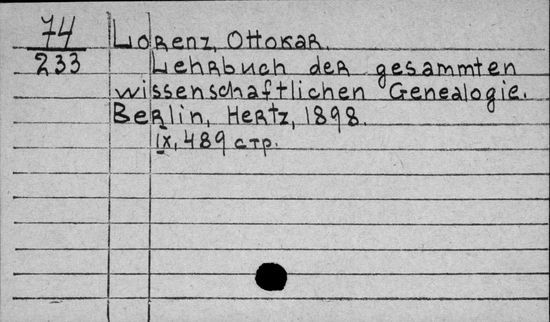 74
233
Lorenz, Ottokar.
Lehrbuch der gesammten
wissenschaftlichen Genealogie.
Berlin, Hertz, 1898.
IX, 489 стр.